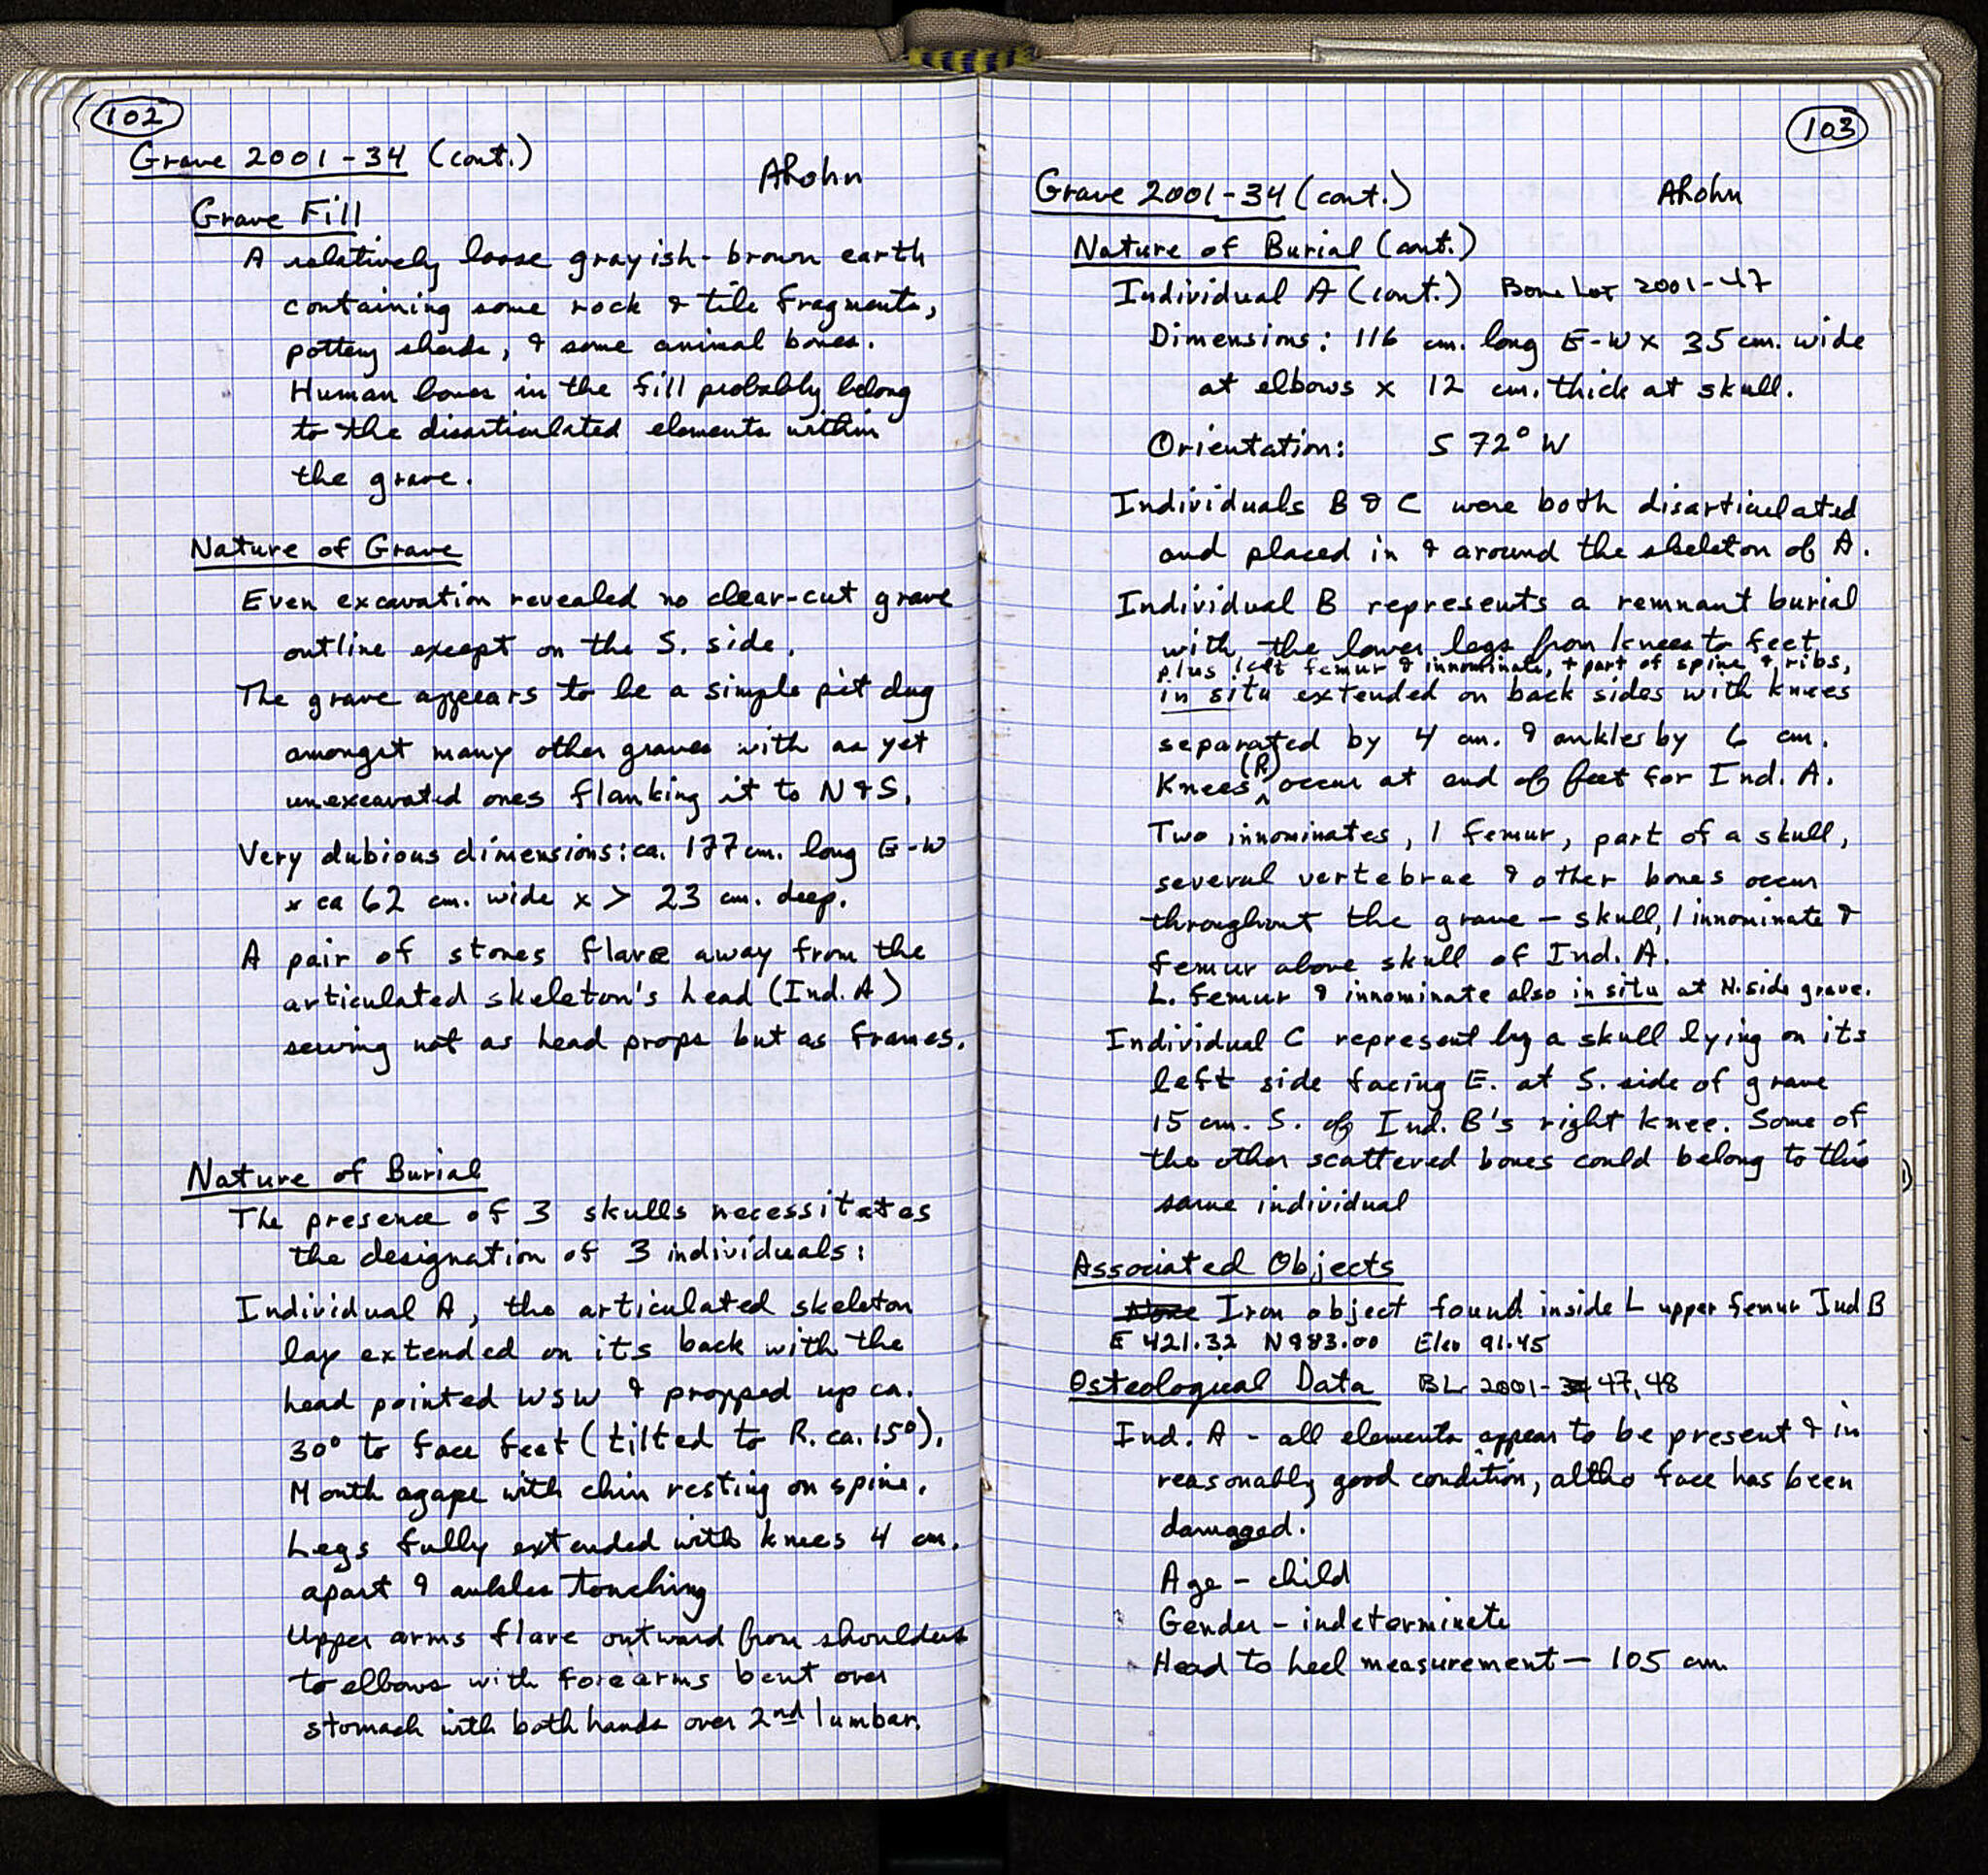 102
Grave 2001-34 (cont.)
ARohn
Grave Fill
A relatively loose grayish-brown earth
containing some rock & tile fragments,
pottery sherds, & some animal bones.
Human bones in the fill probably belong
to the disarticulated elements within
the grave.
Nature of Grave
Even excavation revealed no clear-cut grave
outline except on the S. side.
The grave appears to be a simple pit dug
amongst many other graves with as yet
unexcavated ones flanking it to N & S.
Very dubious dimensions: ca. 177 cm. long E-W
x ca 62 cm. wide x > 23 cm. deep.
A pair of stones flare away from the
articulated skeleton's head (Ind. A)
serving not as head props but as frames.
Nature of Burial
The presence of 3 skulls necessitates
the designation of 3 individuals:
Individual A, the articulated skeleton
lay extended on its back with the
head pointed WSW & propped up ca.
30° to face feet (tilted to R. ca. 15°).
Mouth agape with chin resting on spine.
Legs fully extended with knees 4 cm.
apart & ankles touching
Upper arms flare outward from shoulders
to elbows with forearms bent over
stomach with both hands over 2nd lumbar.
103
Grave 2001-34 (cont.)
ARohn
Nature of Burial (cont.)
Individual A (cont.) Bone Lot 2001-47
Dimensions: 116 cm. long E-W x 35 cm. wide
at elbows x 12 cm. thick at skull.
Orientation: S 72° W
Individuals B & C were both disarticulated
and placed in & around the skeleton of A.
Individual B represents a remnant burial
with the lower legs from knees to feet
plus left femur & innominate, + part of spine & ribs,
in situ extended on back sides with knees
separated by 4 cm. & ankles by 6 cm.
Knees (R) occur at end of feet for Ind. A.
Two innominates, 1 femur, part of a skull,
several vertebrae & other bones occur
throughout the grave – skull, 1 innominate &
femur above skull of Ind. A.
L. femur & innominate also in situ at N. side grave.
Individual C represent by a skull lying on its
left side facing E. at S. side of grave
15 cm. S. of Ind. B's right knee. Some of
the other scattered bones could belong to this
same individual
Associated Objects
None Iron object found inside L upper femur Ind B
E 421.32 N983.00 Elev 91.45
Osteological Data BL 2001-47, 48
Ind. A - all elements appear to be present & in
reasonably good condition, altho face has been
damaged.
Age - child
Gender - indeterminate
Head to heel measurement – 105 cm.